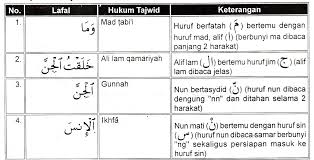 No. Lafal Hukum Tajwid Keterangan
1. وَمَا Mad tabi'i Huruf berfatah (مَ) bertemu dengan
huruf mad, alif (ا) (berbunyi ma dibaca
panjang 2 harakat)
2. خَلَقْتُ الْجِنَّ Ali lam qamariyah Alif lam (ال) bertemu huruf jim (ج) (alif
lam dibaca jelas)
3. الْجِنَّ Gunnah Nun bertasydid (نّ) (huruf nun dibaca
dengung "nn" dan ditahan selama 2
harakat)
4. الْإِنْسَ Ikhfá Nun mati (نْ) bertemu dengan huruf sin
(س) (huruf nun dibaca samar berbunyi
"ng" sekaligus persiapan masuk ke
huruf sin)